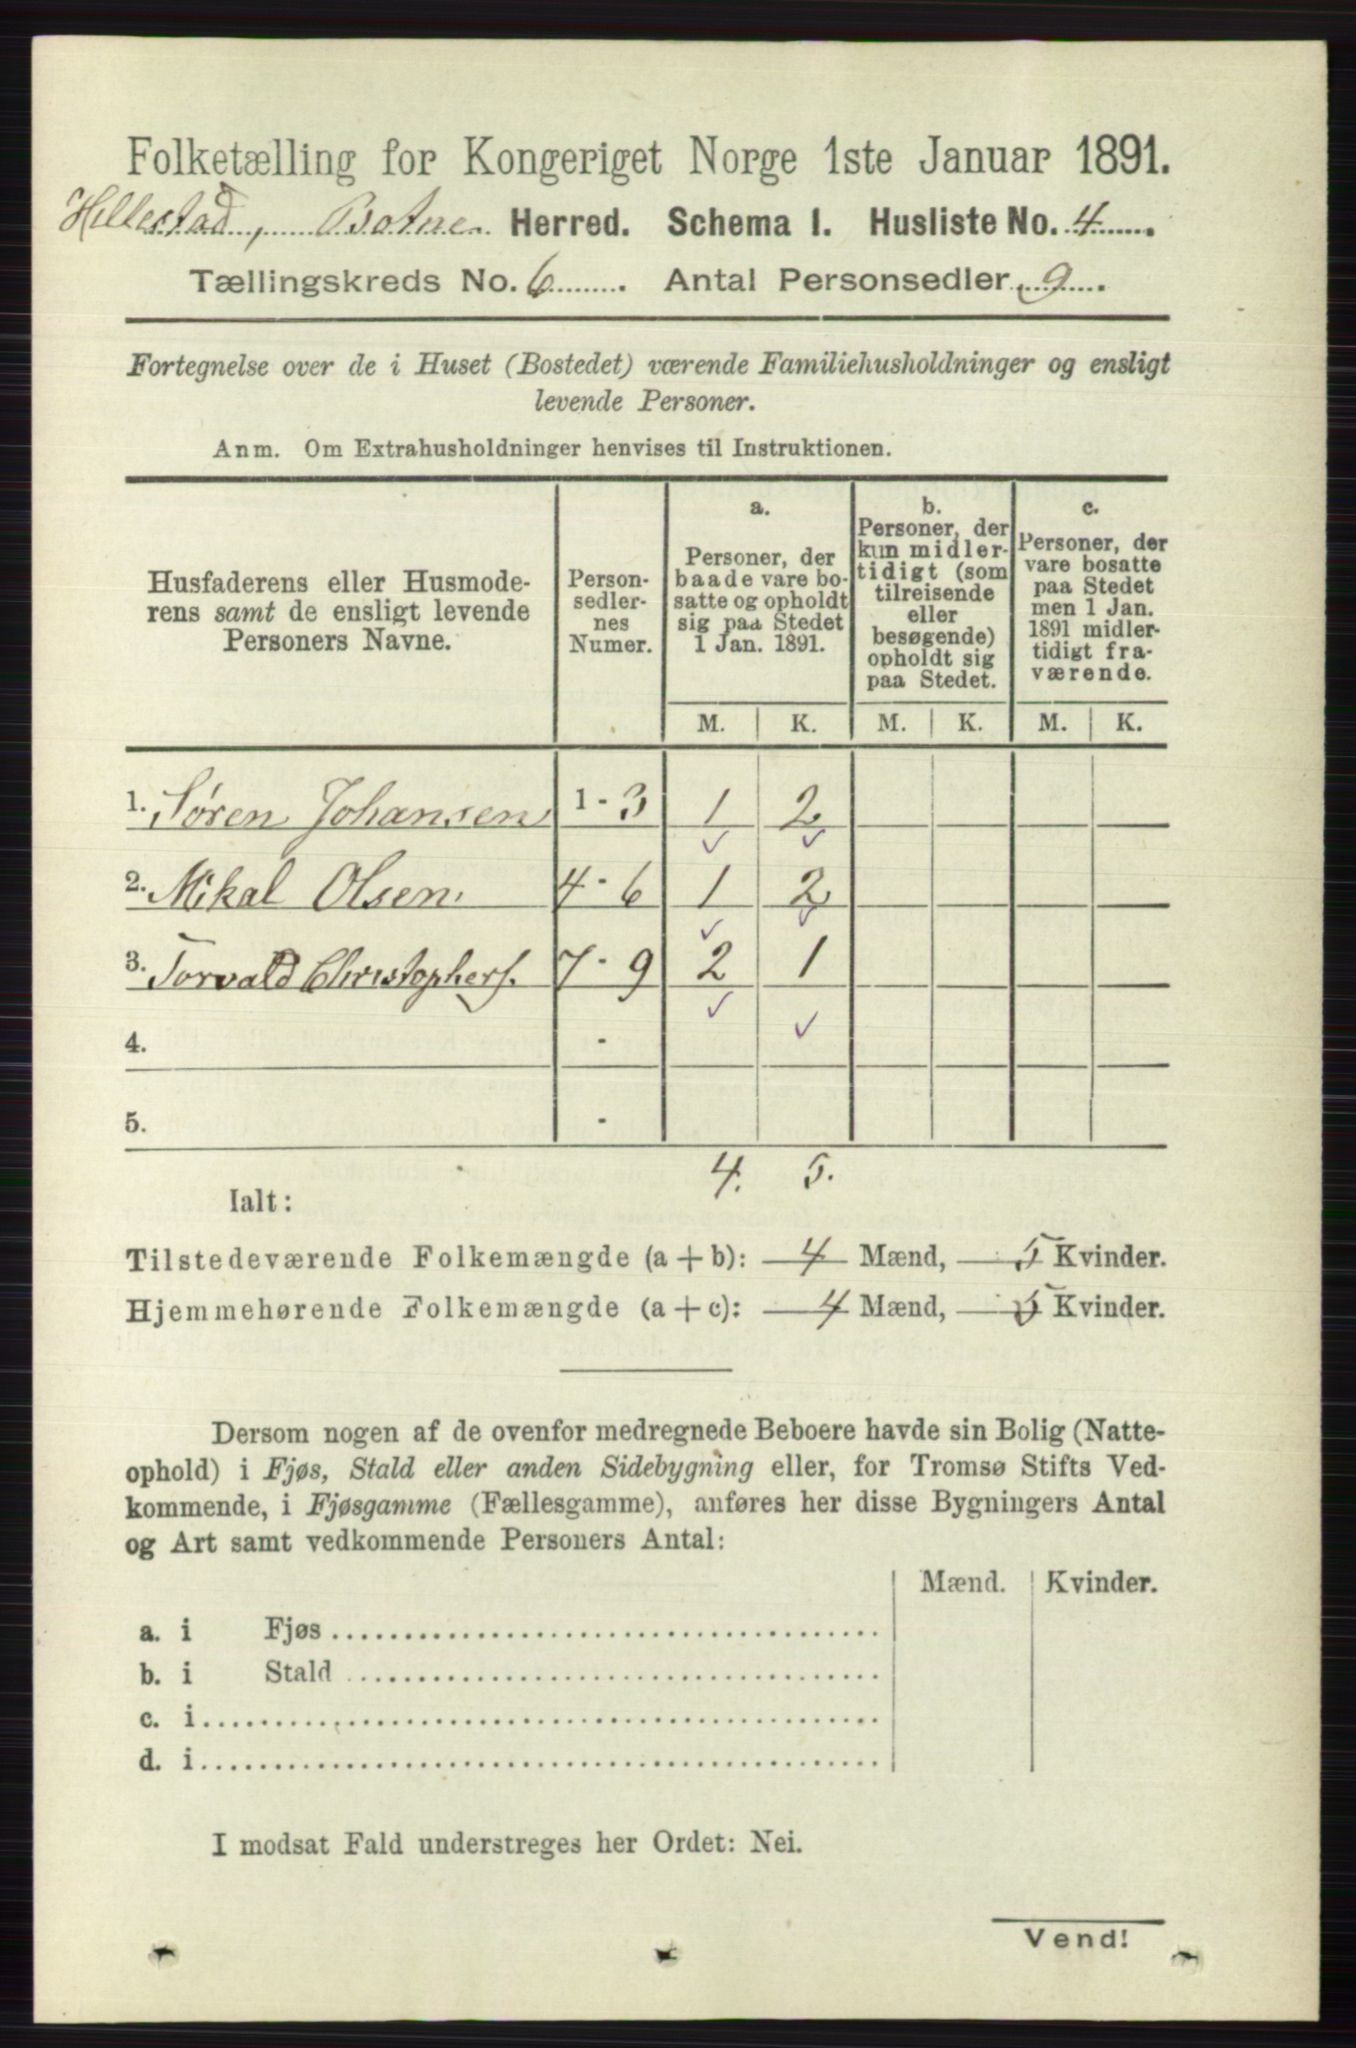 Folketælling for Kongeriget Norge 1ste Januar 1891.
Hillestad, Botne Herred. Schema I. Husliste No. 4
Tællingskreds No. 6. Antal Personsedler 9.
Fortegnelse over de i Huset (Bostedet) værende Familiehusholdninger og ensligt
levende Personer.
Anm. Om Extrahusholdninger henvises til Instruktionen.
Husfaderens eller Husmode-
rens samt de ensligt levende
Personers Navne.
Person-
sedler-
nes
Numer.
a.
Personer, der
baade vare bo-
satte og opholdt
sig paa Stedet
1 Jan. 1891.
b.
Personer, der
kun midler-
tidigt (som
tilreisende
eller
besøgende)
opholdt sig
paa Stedet.
c.
Personer, der
vare bosatte
paa Stedet
men 1 Jan.
1891 midler-
tidigt fra-
værende.
M. K. M. K. M. K.
1. Søren Johansen 1 - 3 1 2
2. Mikal Olsen 4 - 6 1 2
3. Torvald Christophers. 7 - 9 2 1
4. -
5. -
4. 5.
Ialt:
Tilstedeværende Folkemængde (a + b): 4 Mænd, 5 Kvinder.
Hjemmehørende Folkemængde (a + c): 4 Mænd, 5 Kvinder.
Dersom nogen af de ovenfor medregnede Beboere havde sin Bolig (Natte-
ophold) i Fjøs, Stald eller anden Sidebygning eller, for Tromsø Stifts Ved-
kommende, i Fjøsgamme (Fællesgamme), anføres her disse Bygningers Antal
og Art samt vedkommende Personers Antal:
Mænd. Kvinder.
a. i Fjøs
b. i Stald
c. i
d. i
I modsat Fald understreges her Ordet: Nei.
Vend!